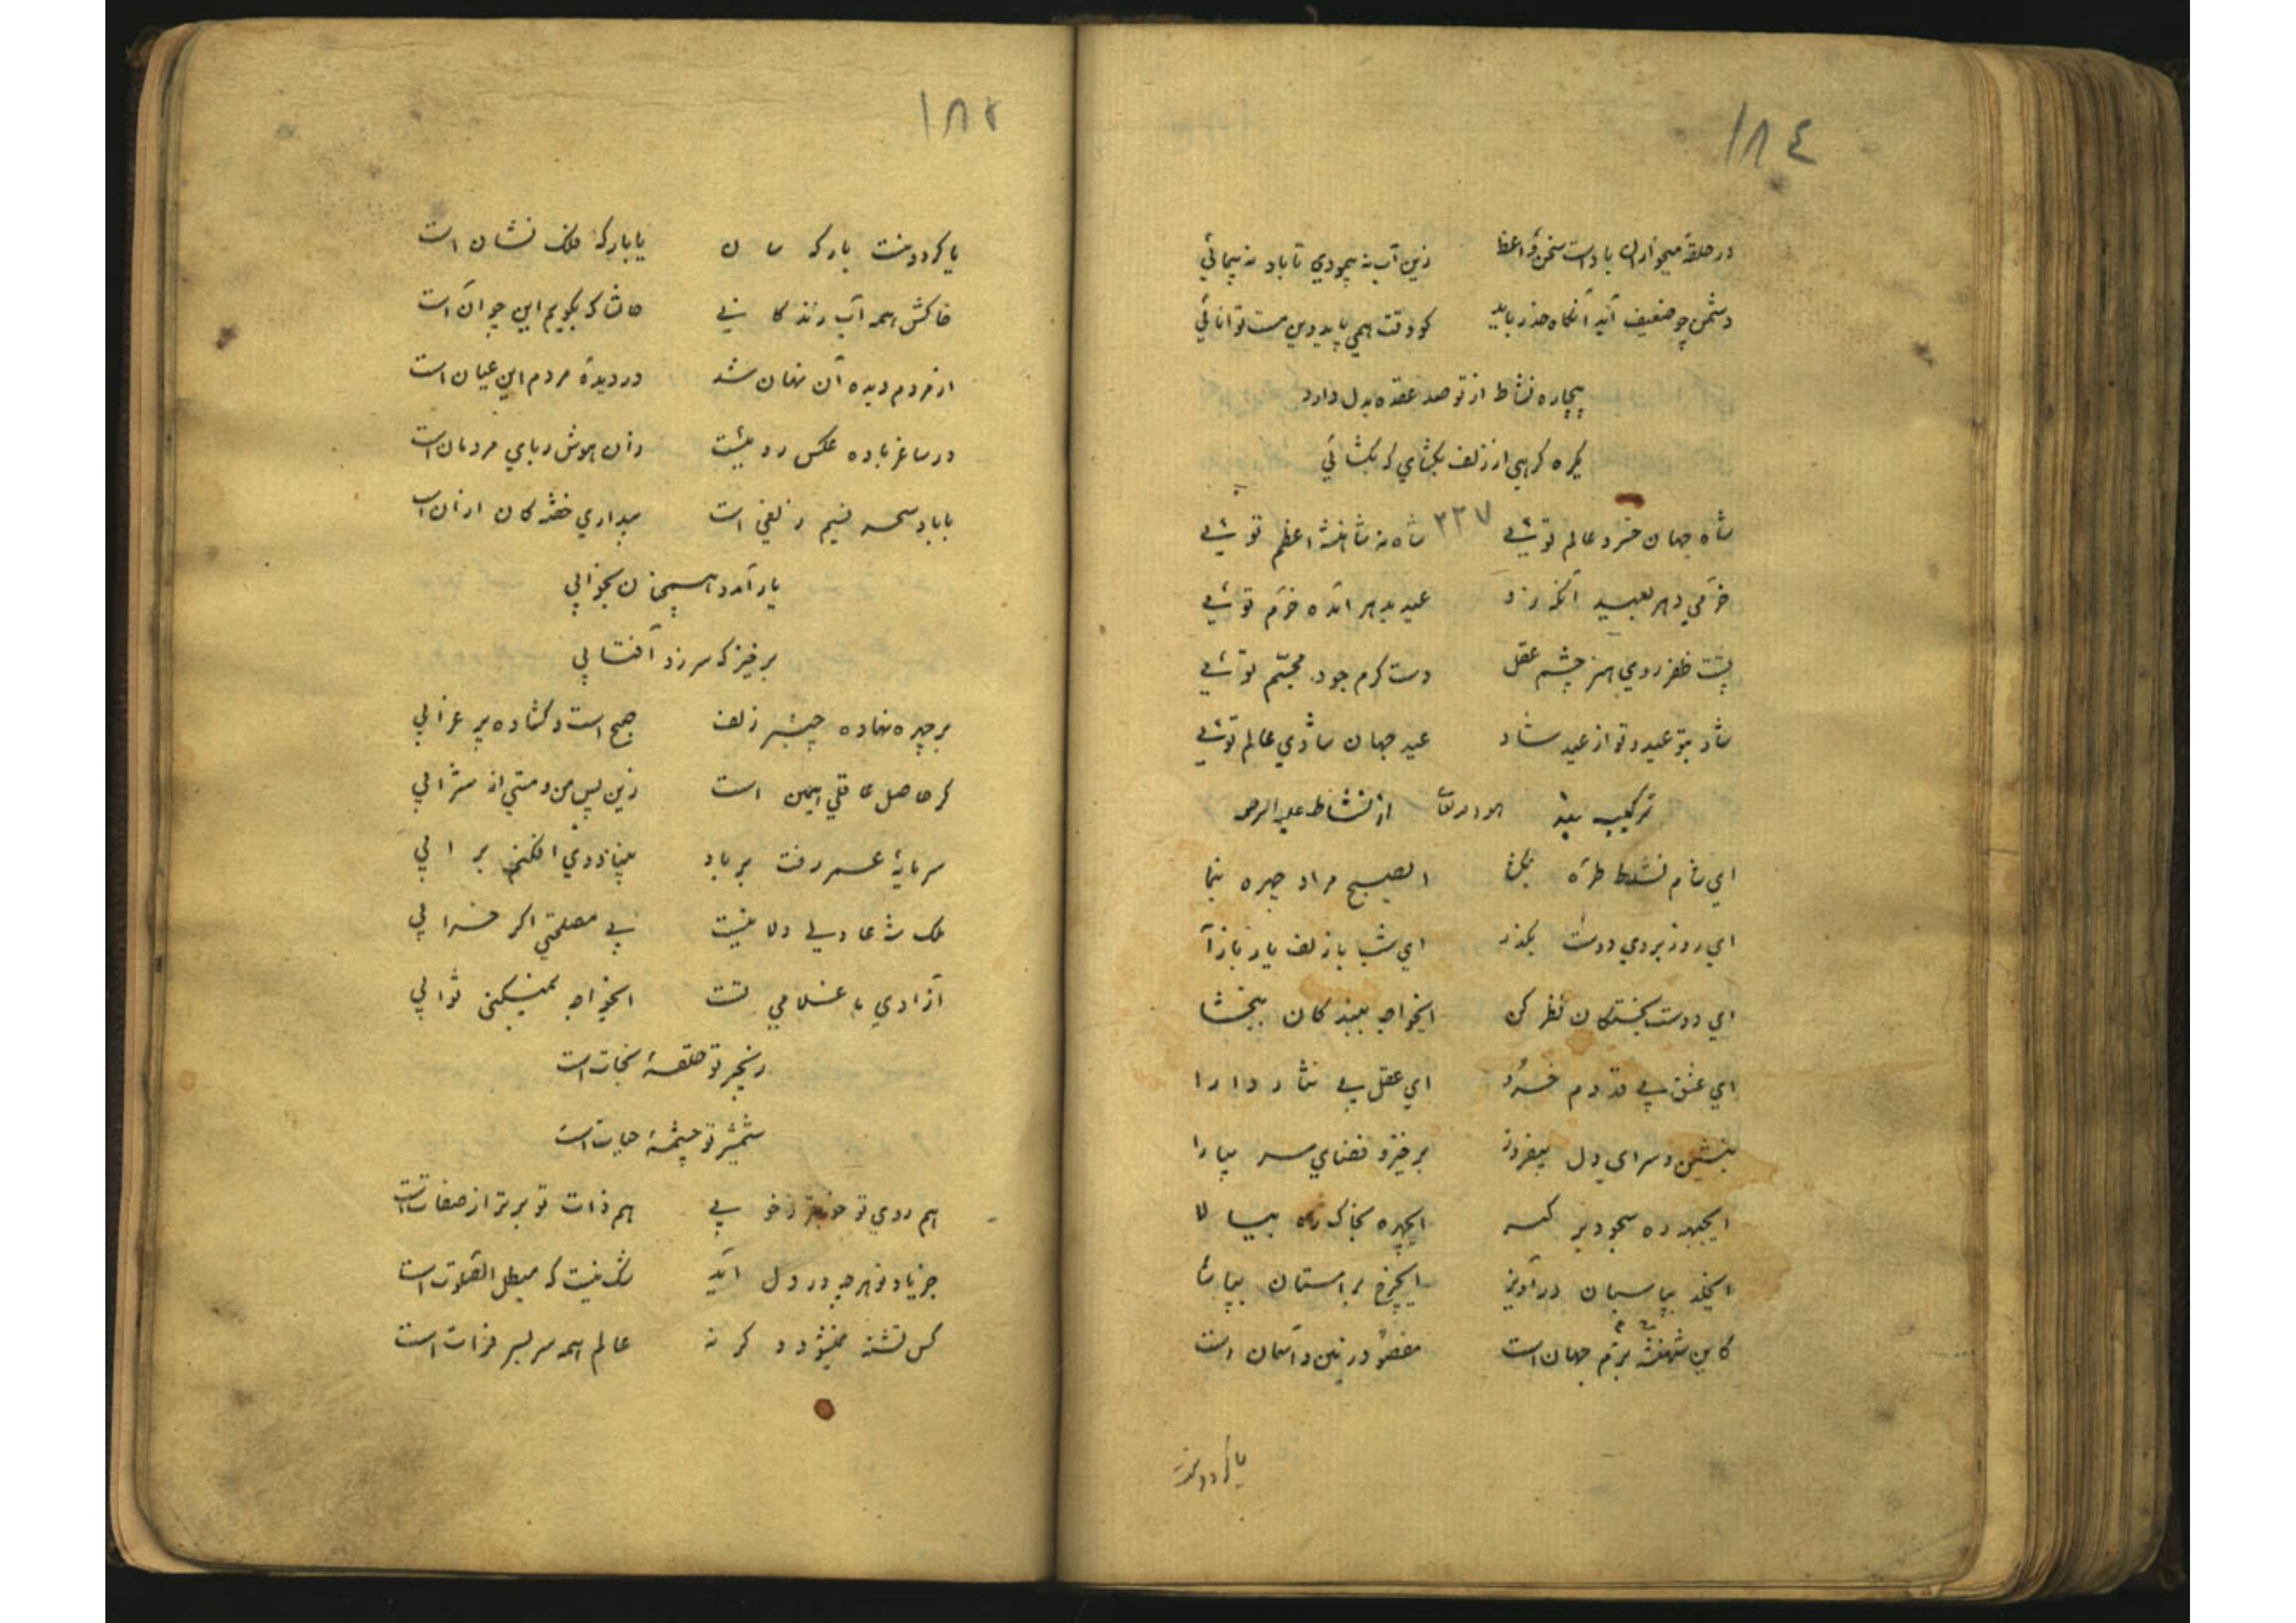 ١٨٤
در حلقه میخواران باد است سخن واعظ زین آب نه پیمودی تا باد نه پیمائی
دشمن چو ضعیف آید آنگاه حذر باید کو وقت همی پاید وین نیست توانائی
بیچاره نشاط از تو صد عقده بدل دارد
یکره گرهی از زلف بگشای که بگشائی
٣٣٧
شاه جهان خسرو عالم توئی شاه نه شاهنشه اعظم توئی
خرمی دهر بعید آنکه زند عید بدهر آمده خرم توئی
پشت ظفر روی هنر چشم عقل دست کرم جود مجسّم توئی
شاد بتو عید و تو از عید شاد عید جهان شادی عالم توئی
ترکیب بند از نشاط علیه الرحمه
ای شام نشاط طره بگشا ای صبح مراد چهره بنما
ای روز بروی دوست بگذر ای شب با زلف یار باز آ
ای دوست بخستگان نظر کن ایخواجه ببندگان ببخشا
ای عشق پی قدوم خسرو ای عقل پی نثار دارا
بنشین و سرای دل بیفروز برخیز و فضای سر بیارا
ایجبهه ره سجود بر ایچهره بخاک راه بیسا
ایخلد بپاسبان درآویز ایچرخ بر آستان بپا
کاین شهنشه بزم جهان است مقصود زمین و آسمان است
یا کرد و منت
١٨٣
یا کرد و منت بارگه یا بارگه ملک نشان است
خاکش همه آب زندگانی حاشا که بگویم این چو آن است
از مردم دیده آن نهان شد در دیده مردم این عیان است
در ساغر باده عکس رویست زان هوش ربای مردمان است
با باد سحر نسیم زلفی است بیداری خفتگان از آن است
یار آمد و اسیخن بخوابی
برخیز که سر زد آفتابی
بر چهره نهاده چنبر زلف صبح است و گشاده پر غرابی
گر حاصل عاقلی همین است زین پس من و مستی از شرابی
سرمایه عمر رفت بر باد بنیاد وی افکنم بر آبی
ملک شه عادلی دلا نیست بی مصلحتی اگر خرابی
آزادی ما غلامی تست ایخواجه نمیکنی ثوابی
زنجیر تو حلقه نجات است
شمشیر تو چشمه حیات است
هم روی تو خوبتر ز خوبی هم ذات تو برتر از صفات است
جز یاد تو هر چه در دل آید شک نیست که مبطل الصلوة است
کس تشنه نمیشود و گر نه عالم همه سر بسر فرات است